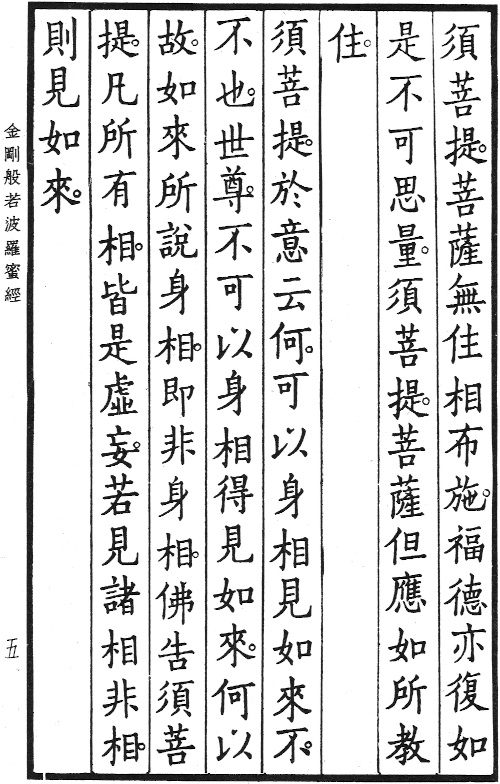 須菩提。菩薩無住相布施。福德亦復如
是不可思量。須菩提。菩薩但應如所教
住。
須菩提。於意云何。可以身相見如來不。
不也。世尊。不可以身相得見如來。何以
故。如來所說身相。即非身相。佛告須菩
提。凡所有相。皆是虛妄。若見諸相非相。
則見如來。
金剛般若波羅蜜經
五